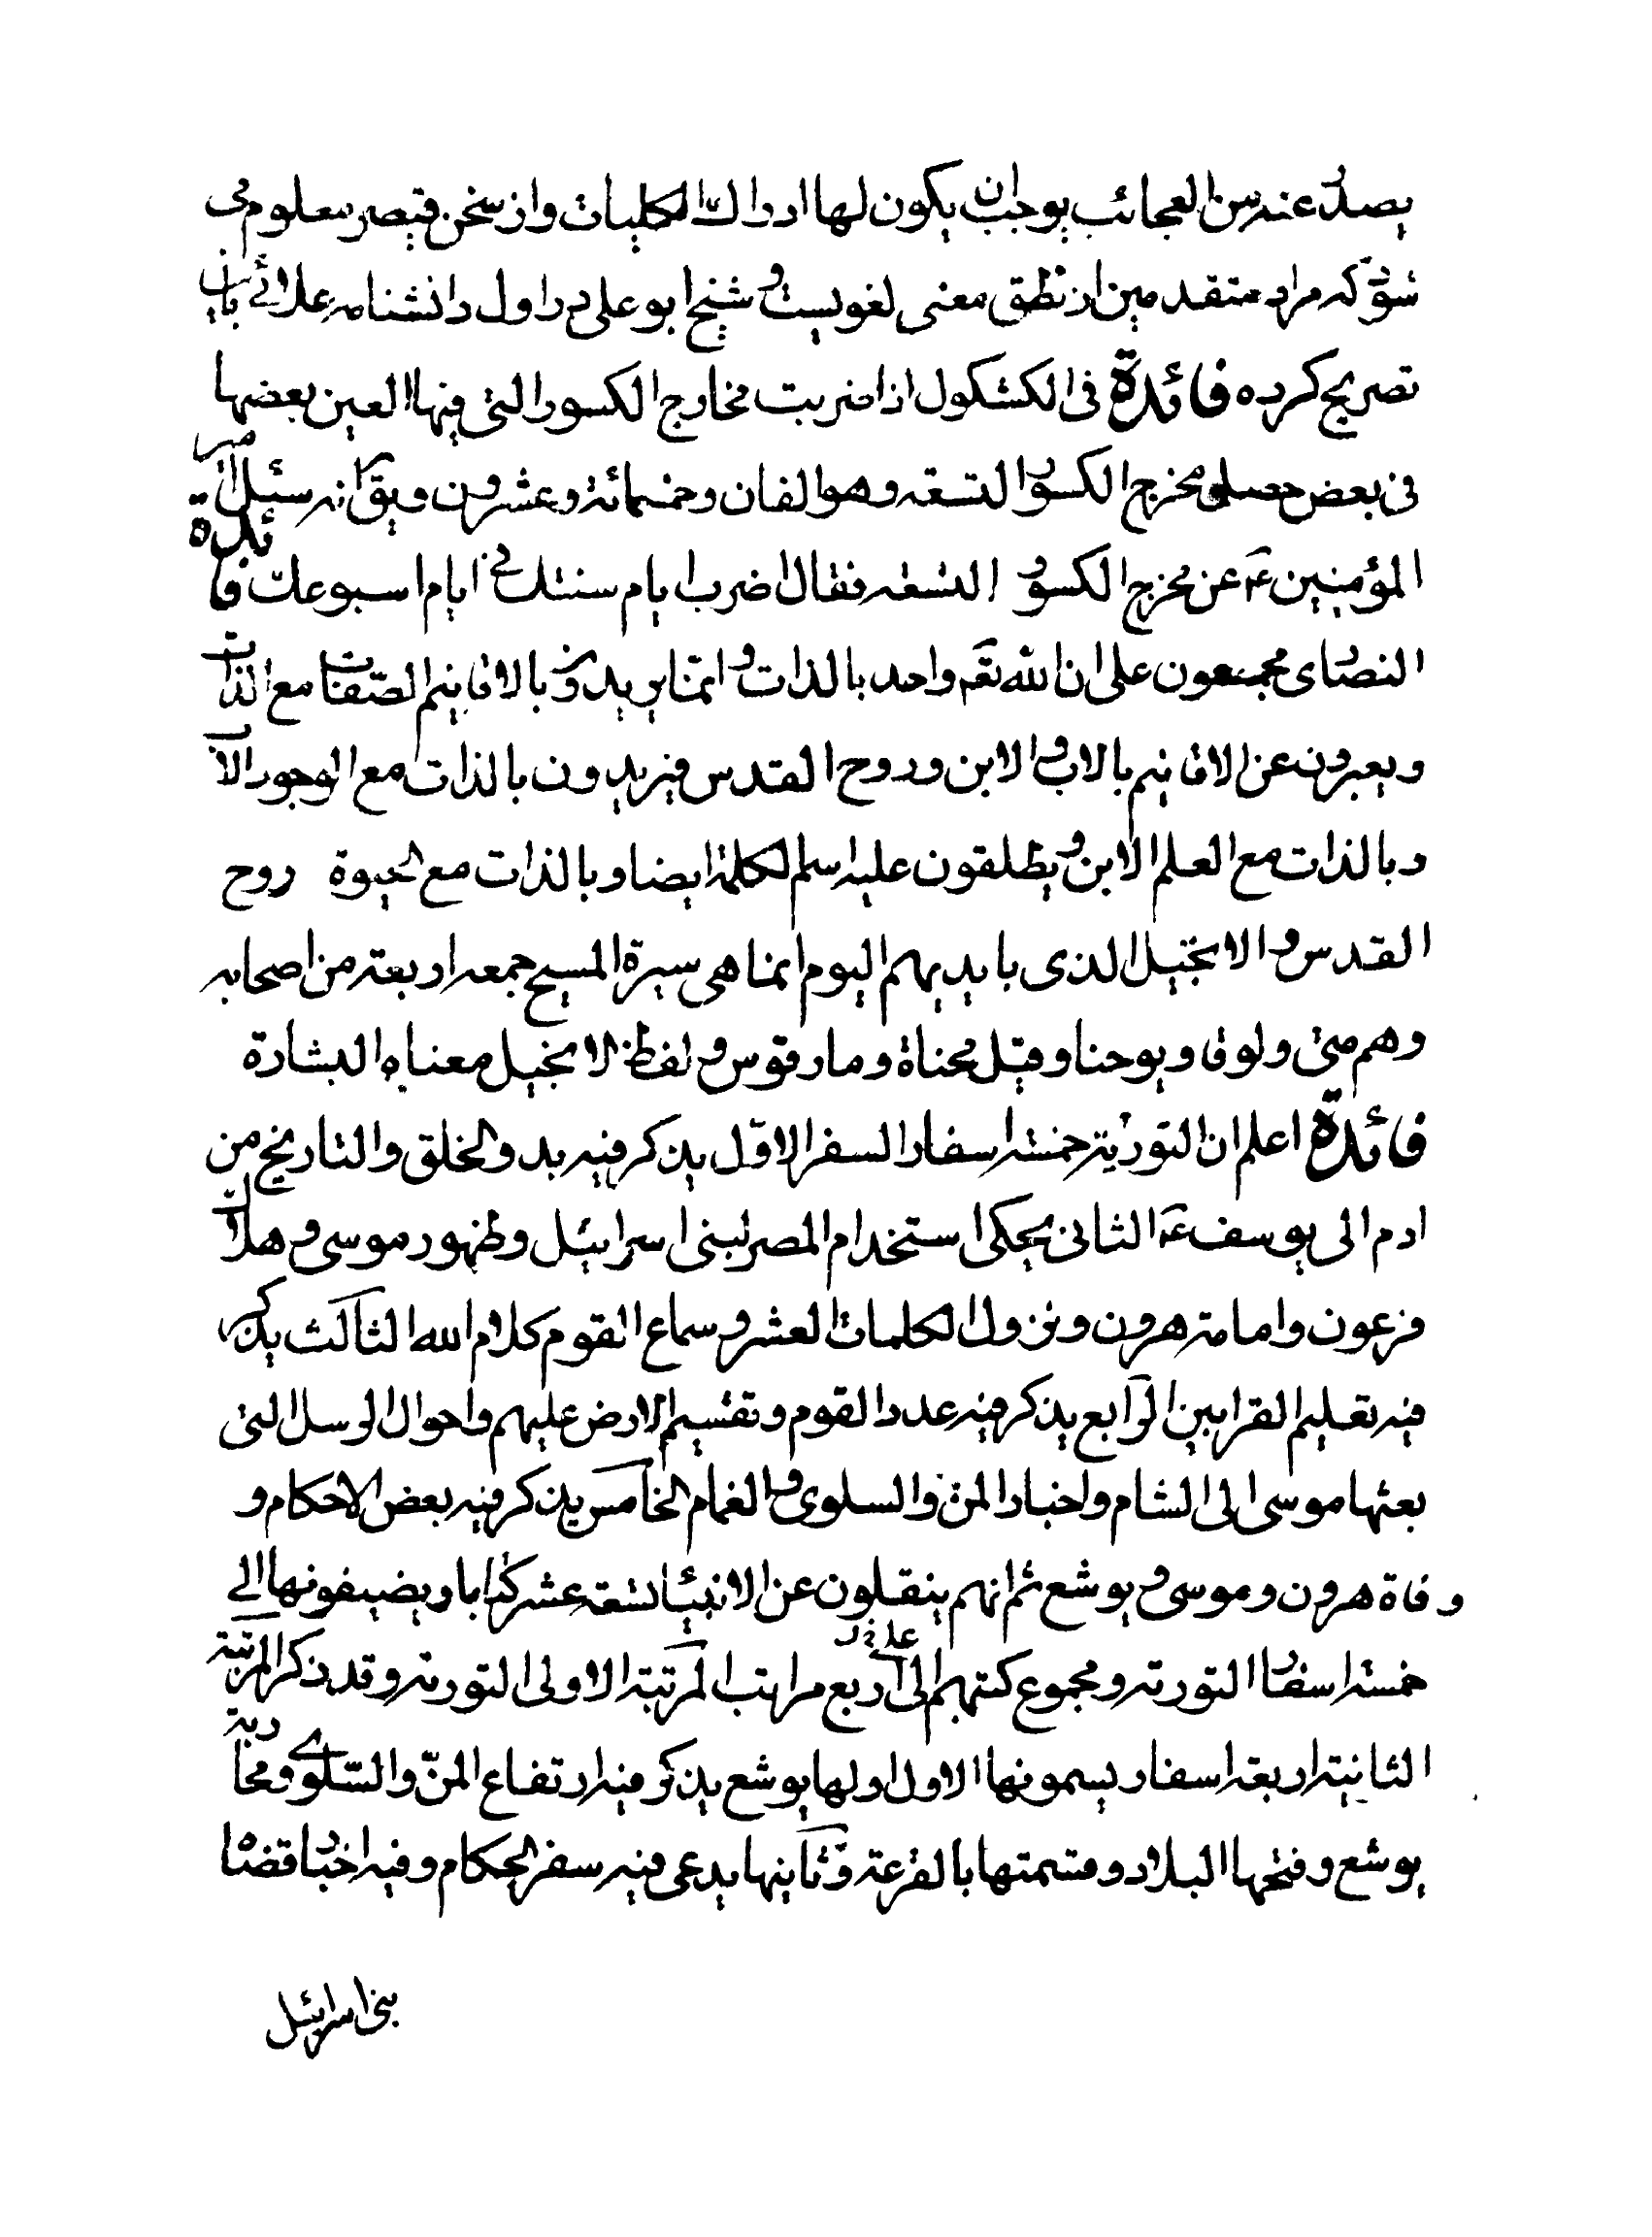 يصدر عنه من العجائب يوجب ان يكون لها ادراك الكليات وازسخن قيصر معلوم مى
شود كه مراد متقدمين از نطق معنى لغويست و شيخ ابو على در اول دانشنامه علائى باين
تصريح كرده فائدة فى الكشكول اذا ضربت مخارج الكسور التى فيها العين بعضها
فى بعض حصل مخرج الكسور التسعه وهو الفان وخمسمائة وعشرون ويق انه سئل امير
المؤمنين ع عن مخرج الكسور التسعه فقال اضرب ايام سنتك فى ايام اسبوعك فائدة
النصارى مجمعون على ان الله تعم واحد بالذات و انما يريدون بالاقانيم الصفات مع الذات
ويعبرون عن الاقانيم بالاب و الابن وروح القدس فيريدون بالذات مع الوجود الاب
وبالذات مع العلم الابن و يطلقون عليه اسم الكلمة ايضا وبالذات مع الحيوة روح
القدس و الانجيل الذى بايديهم اليوم انما هى سيرة المسيح جمعه اربعة من اصحابه
وهم متى ولوقا ويوحنا وقيل محناة ومارقوس و لفظ الانجيل معناه البشارة
فائدة اعلم ان التورية خمسة اسفار السفر الاول يذكر فيه بدو الخلق والتاريخ من
ادم الى يوسف ع الثانى يحكى استخدام المصر لبنى اسرائيل وظهور موسى و هلاك
فرعون وامامة هرون ونزول الكلمات العشر و سماع القوم كلام الله الثالث يذكر
فيه تعليم القرابين الرابع يذكر فيه عدد القوم وتقسيم الارض عليهم واحوال الرسل التى
بعثها موسى الى الشام واخبار المن والسلوى و الغمام الخامس يذكر فيه بعض الاحكام و
وفاة هرون وموسى و يوشع ثم انهم ينقلون عن الانبيا تسعة عشر كتابا ويضيفونها الى
خمسة اسفار التورته ومجموع كتبهم الى اربع مراتب المرتبة الاولى التورته وقد ذكر المرتبة
الثانية اربعة اسفار يسمونها الاول اولها يوشع يذكر فيه ارتفاع المن والسلوى ومحاربة
يوشع وفتحها البلاد وقسمتها بالقرعة و ثانيها يدعى فيه سفر الحكام وفيه اخبار قضاة
بنى اسرائيل